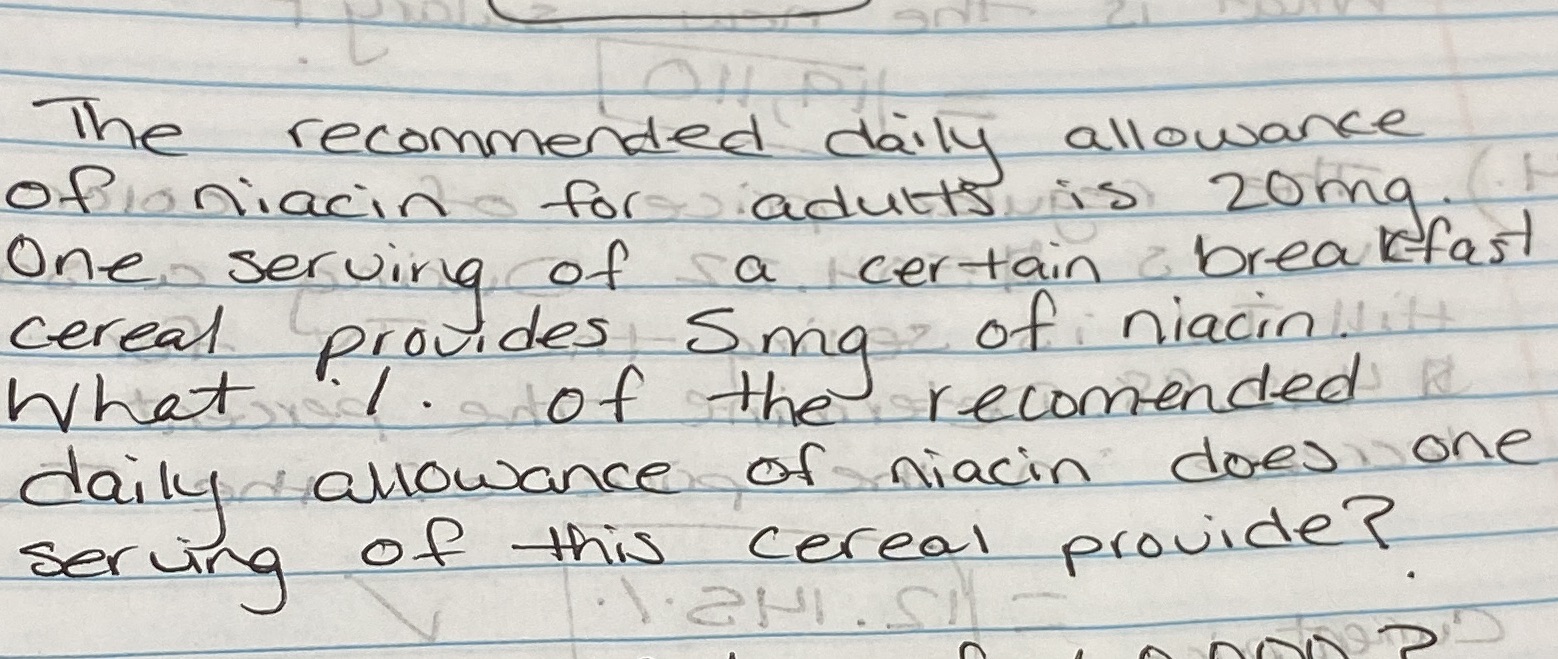 The recommended daily allowance
of niacin for adults is 20mg.
One serving of a certain breakfast
cereal provides 5mg of niacin.
What % of the recomended
daily allowance of niacin does one
serving of this cereal provide?